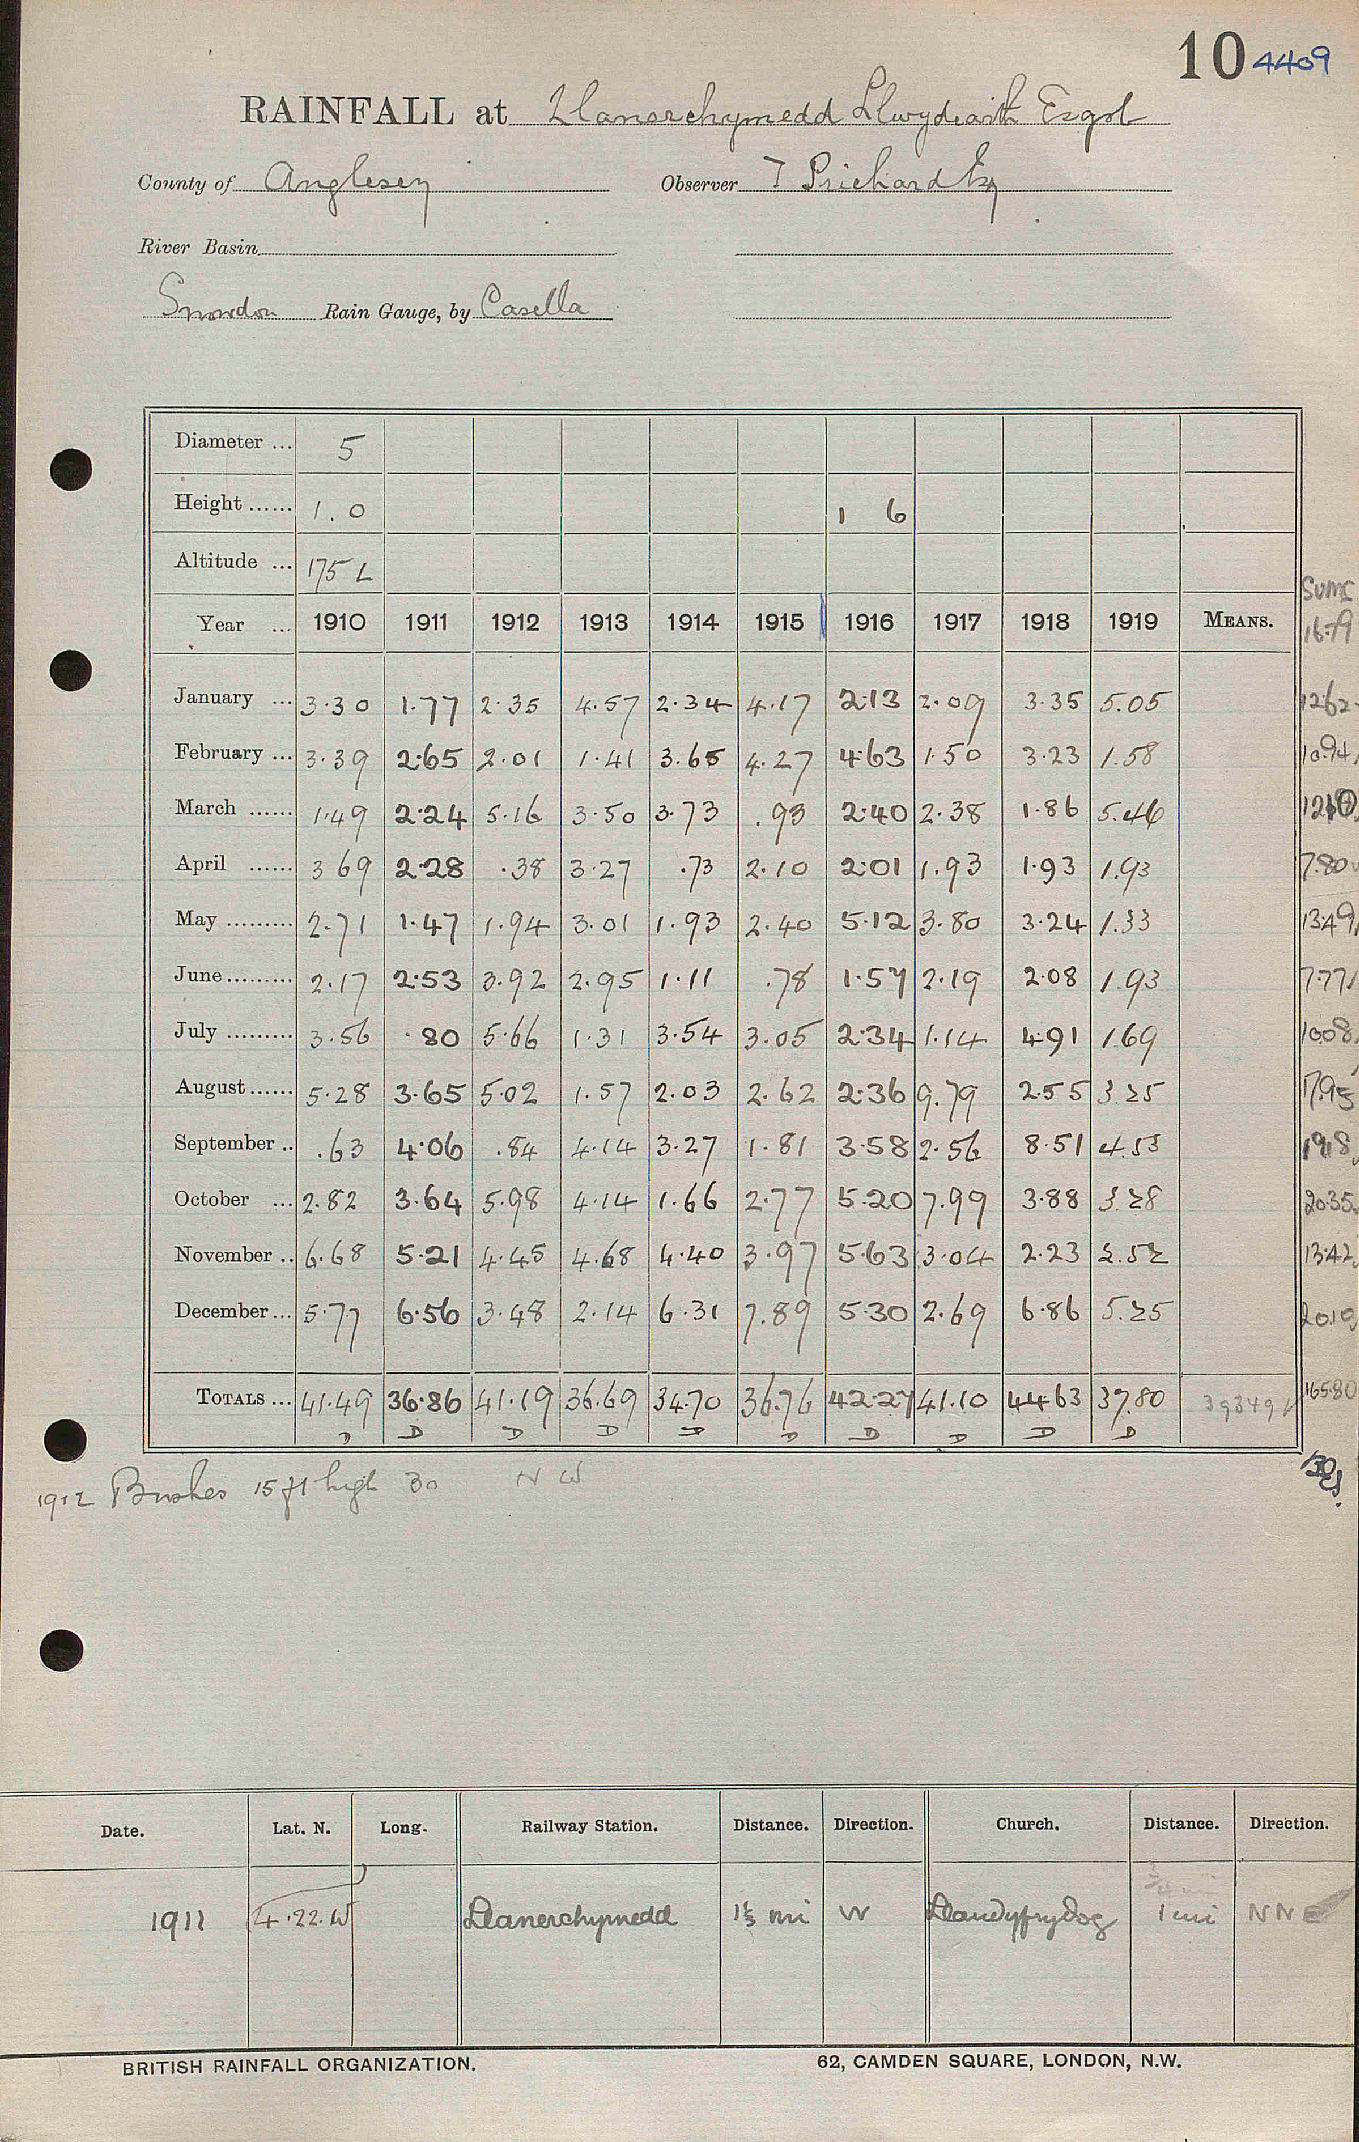 10 4409
RAINFALL at Llanerchymedd Llwydiarth Esgob
County of Anglesey Observer T Prichard Esq
River Basin
Snowdon Rain Gauge, by Casella
Diameter ... 5
Height ...... 1.0 1 6
Altitude ... 175 L
Sums
Year ... 1910 1911 1912 1913 1914 1915 1916 1917 1918 1919 MEANS. 16-19
January ... 3.30 1.77 2.35 4.57 2.34 4.17 2.13 2.09 3.35 5.05 12.62
February ... 3.39 2.65 2.01 1.41 3.65 4.27 4.63 1.50 3.23 1.58 10.94
March ...... 1.49 2.24 5.16 3.50 3.73 .93 2.40 2.38 1.86 5.46 12.10
April ...... 3 69 2.28 .38 3.27 .73 2.10 2.01 1.93 1.93 1.93 7.80
May ......... 2.71 1.47 1.94 3.01 1.93 2.40 5.12 3.80 3.24 1.33 13.49
June ......... 2.17 2.53 3.92 2.95 1.11 .78 1.57 2.19 2.08 1.93 7.77
July ......... 3.56 .80 5.66 1.31 3.54 3.05 2.34 1.14 4.91 1.69 10.08
August ...... 5.28 3.65 5.02 1.57 2.03 2.62 2.36 9.79 2.55 3.25 17.95
September .. .63 4.06 .84 4.14 3.27 1.81 3.58 2.56 8.51 4.53 19.18
October ... 2.82 3.64 5.98 4.14 1.66 2.77 5.20 7.99 3.88 3.28 20.35
November .. 6.68 5.21 4.45 4.68 4.40 3.97 5.63 3.04 2.23 2.52 13.42
December ... 5.77 6.56 3.48 2.14 6.31 7.89 5.30 2.69 6.86 5.25 20.10
TOTALS ... 41.49 36.86 41.19 36.69 34.70 36.76 42.27 41.10 44.63 37.80 393 49 165.80
D D D D D D D D D D
1912 Bushes 15 ft high 30 N W
Date. Lat. N. Long. Railway Station. Distance. Direction. Church. Distance. Direction.
1911 4.22.W Llanerchymedd 1⅓ mi W Llandyfrydog 1 mi N N E
BRITISH RAINFALL ORGANIZATION. 62, CAMDEN SQUARE, LONDON, N.W.